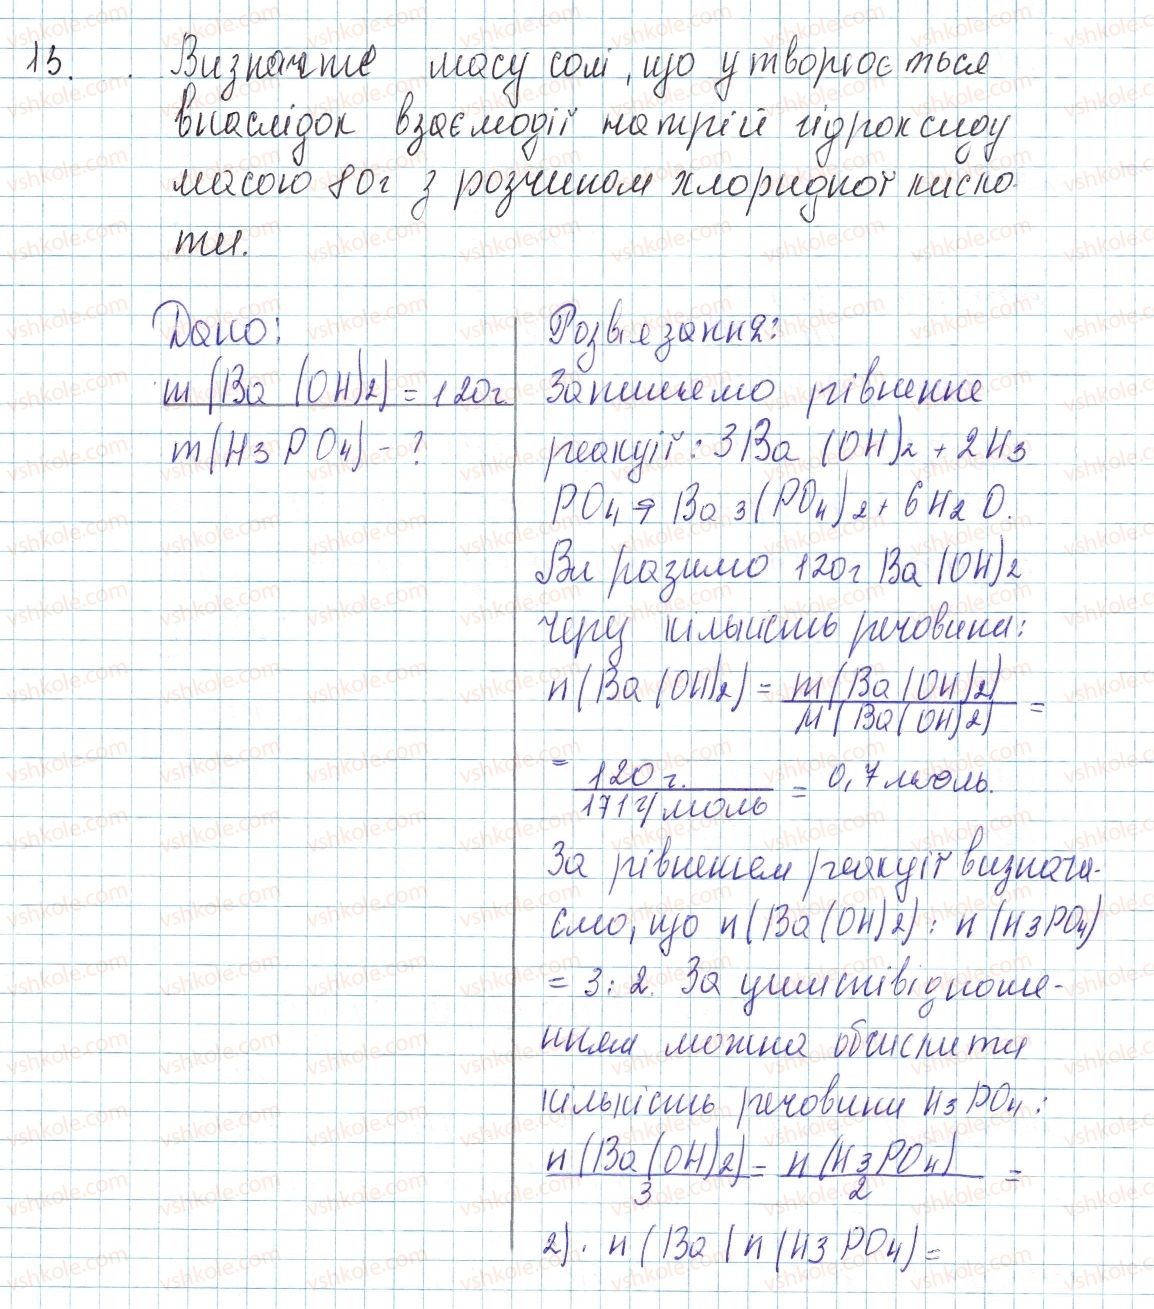 13. Визначте масу солі, що утворюється
внаслідок взаємодії натрій гідроксиду
масою 80г з розчином хлоридної кисло-
ти.
Дано:
m(Ba(OH)2) = 120г
m(H3PO4) - ?
Розв'язання:
Запишемо рівняння
реакції: 3Ba(OH)2 + 2H3
PO4 → Ba3(PO4)2 + 6H2O.
Виразимо 120г Ba(OH)2
через кількість речовини:
n(Ba(OH)2) = m(Ba(OH)2) / M(Ba(OH)2) =
= 120г. / 171г/моль = 0,7 моль.
За рівнянням реакції визнача-
ємо, що n(Ba(OH)2) : n(H3PO4)
= 3:2. За цим співідноше-
нням можна обчислити
кількість речовини H3PO4:
n(Ba(OH)2) / 3 = n(H3PO4) / 2 =
2). n(Ba | n(H3PO4) =